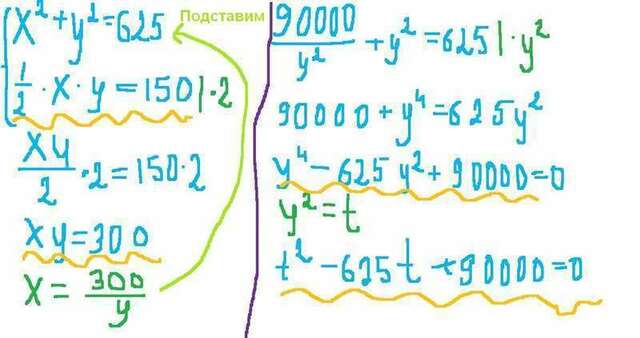 x² + y² = 625
Подставим
1/2 · x · y = 150 | · 2
xy/2 · 2 = 150 · 2
xy = 300
x = 300/y
90000/y² + y² = 625 | · y²
90000 + y⁴ = 625y²
y⁴ - 625y² + 90000 = 0
y² = t
t² - 625t + 90000 = 0